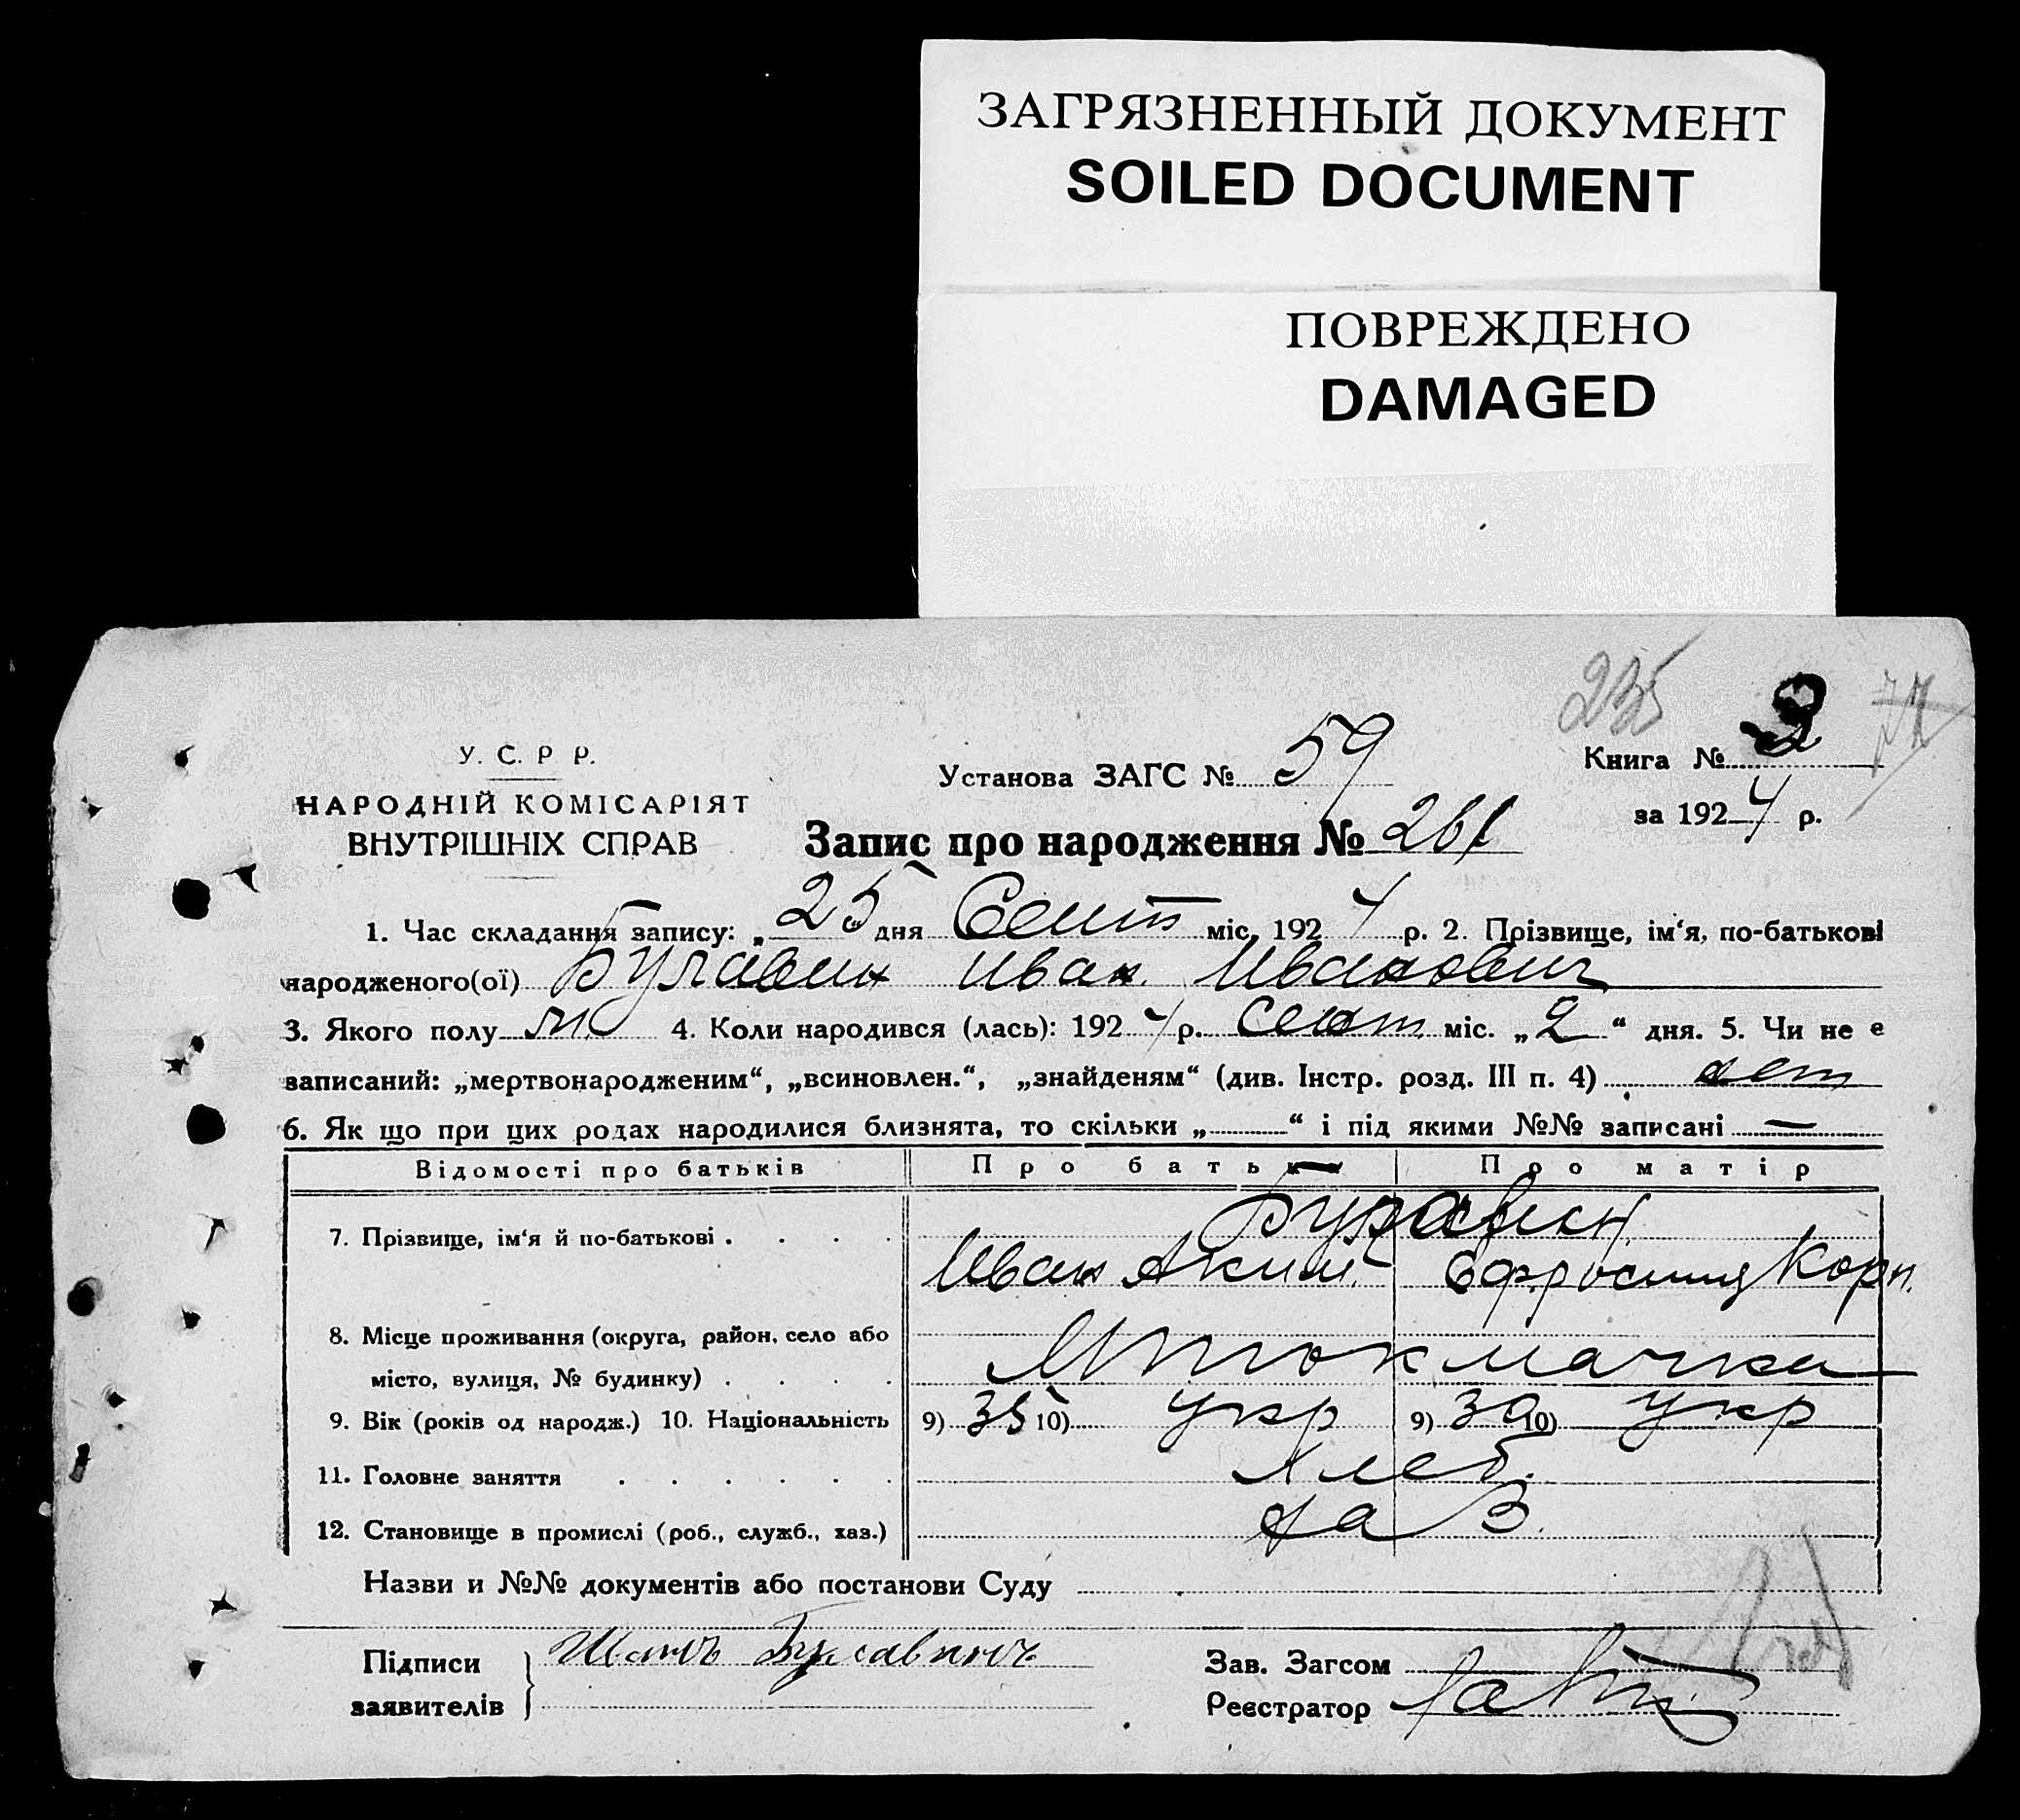 ЗАГРЯЗНЕННЫЙ ДОКУМЕНТ
SOILED DOCUMENT
ПОВРЕЖДЕНО
DAMAGED
235
У. С. Р Р.
НАРОДНІЙ КОМІСАРІЯТ
ВНУТРІШНІХ СПРАВ
Установа ЗАГС № 59
Книга №
за 1924 р.
Запис про народження № 261
1. Час складання запису: „ 25 дня Сент міс. 1924 р. 2. Прізвище, ім‘я, по-батькові
народженого(ої) Булавин Иван Иванович
3. Якого полу м. 4. Коли народився (лась): 1924 р. Сент міс. „2“ дня. 5. Чи не е
записаний: „мертвонародженим“, „всиновлен.“, „знайденям“ (див. Інстр. розд. III п. 4) нет
6. Як що при цих родах народилися близнята, то скільки „ “ і під якими №№ записані —
Відомості про батьків Про батька Про матір
7. Прізвище, ім‘я й по-батькові . . . . Булавин
Иван Аким. Ефросиния Корн.
8. Місце проживання (округа, район, село або
місто, вулиця, № будинку) . . . .
9. Вік (років од народж.) 10. Національність 9) 35 10) укр 9) 30 10) укр
11. Головне заняття . . . . . . Хлеб.
12. Становище в промислі (роб., служб., хаз.)
Назви и №№ документів або постанови Суду
Підписи
заявителів
Иванъ Булавинъ
Зав. Загсом
Реєстратор